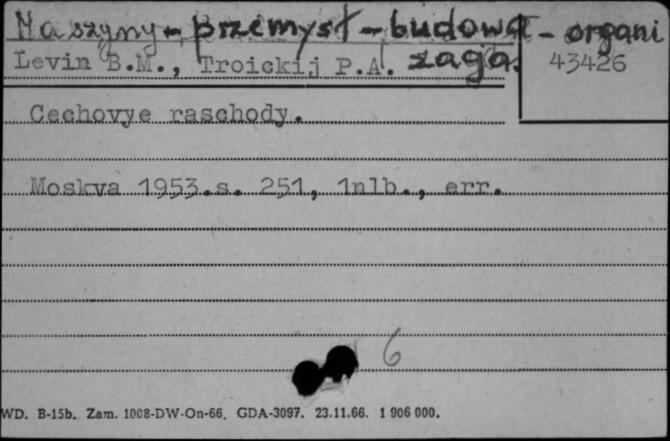 Maszyny - przemysł - budowa - organi
zaga.
Levin B.M., Troickij P.A.
43426
Cechovye raschody.
Moskva 1953.s. 251, 1nlb., err.
6
WD. B-15b. Zam. 1008-DW-On-66. GDA-3097. 23.11.66. 1 906 000.